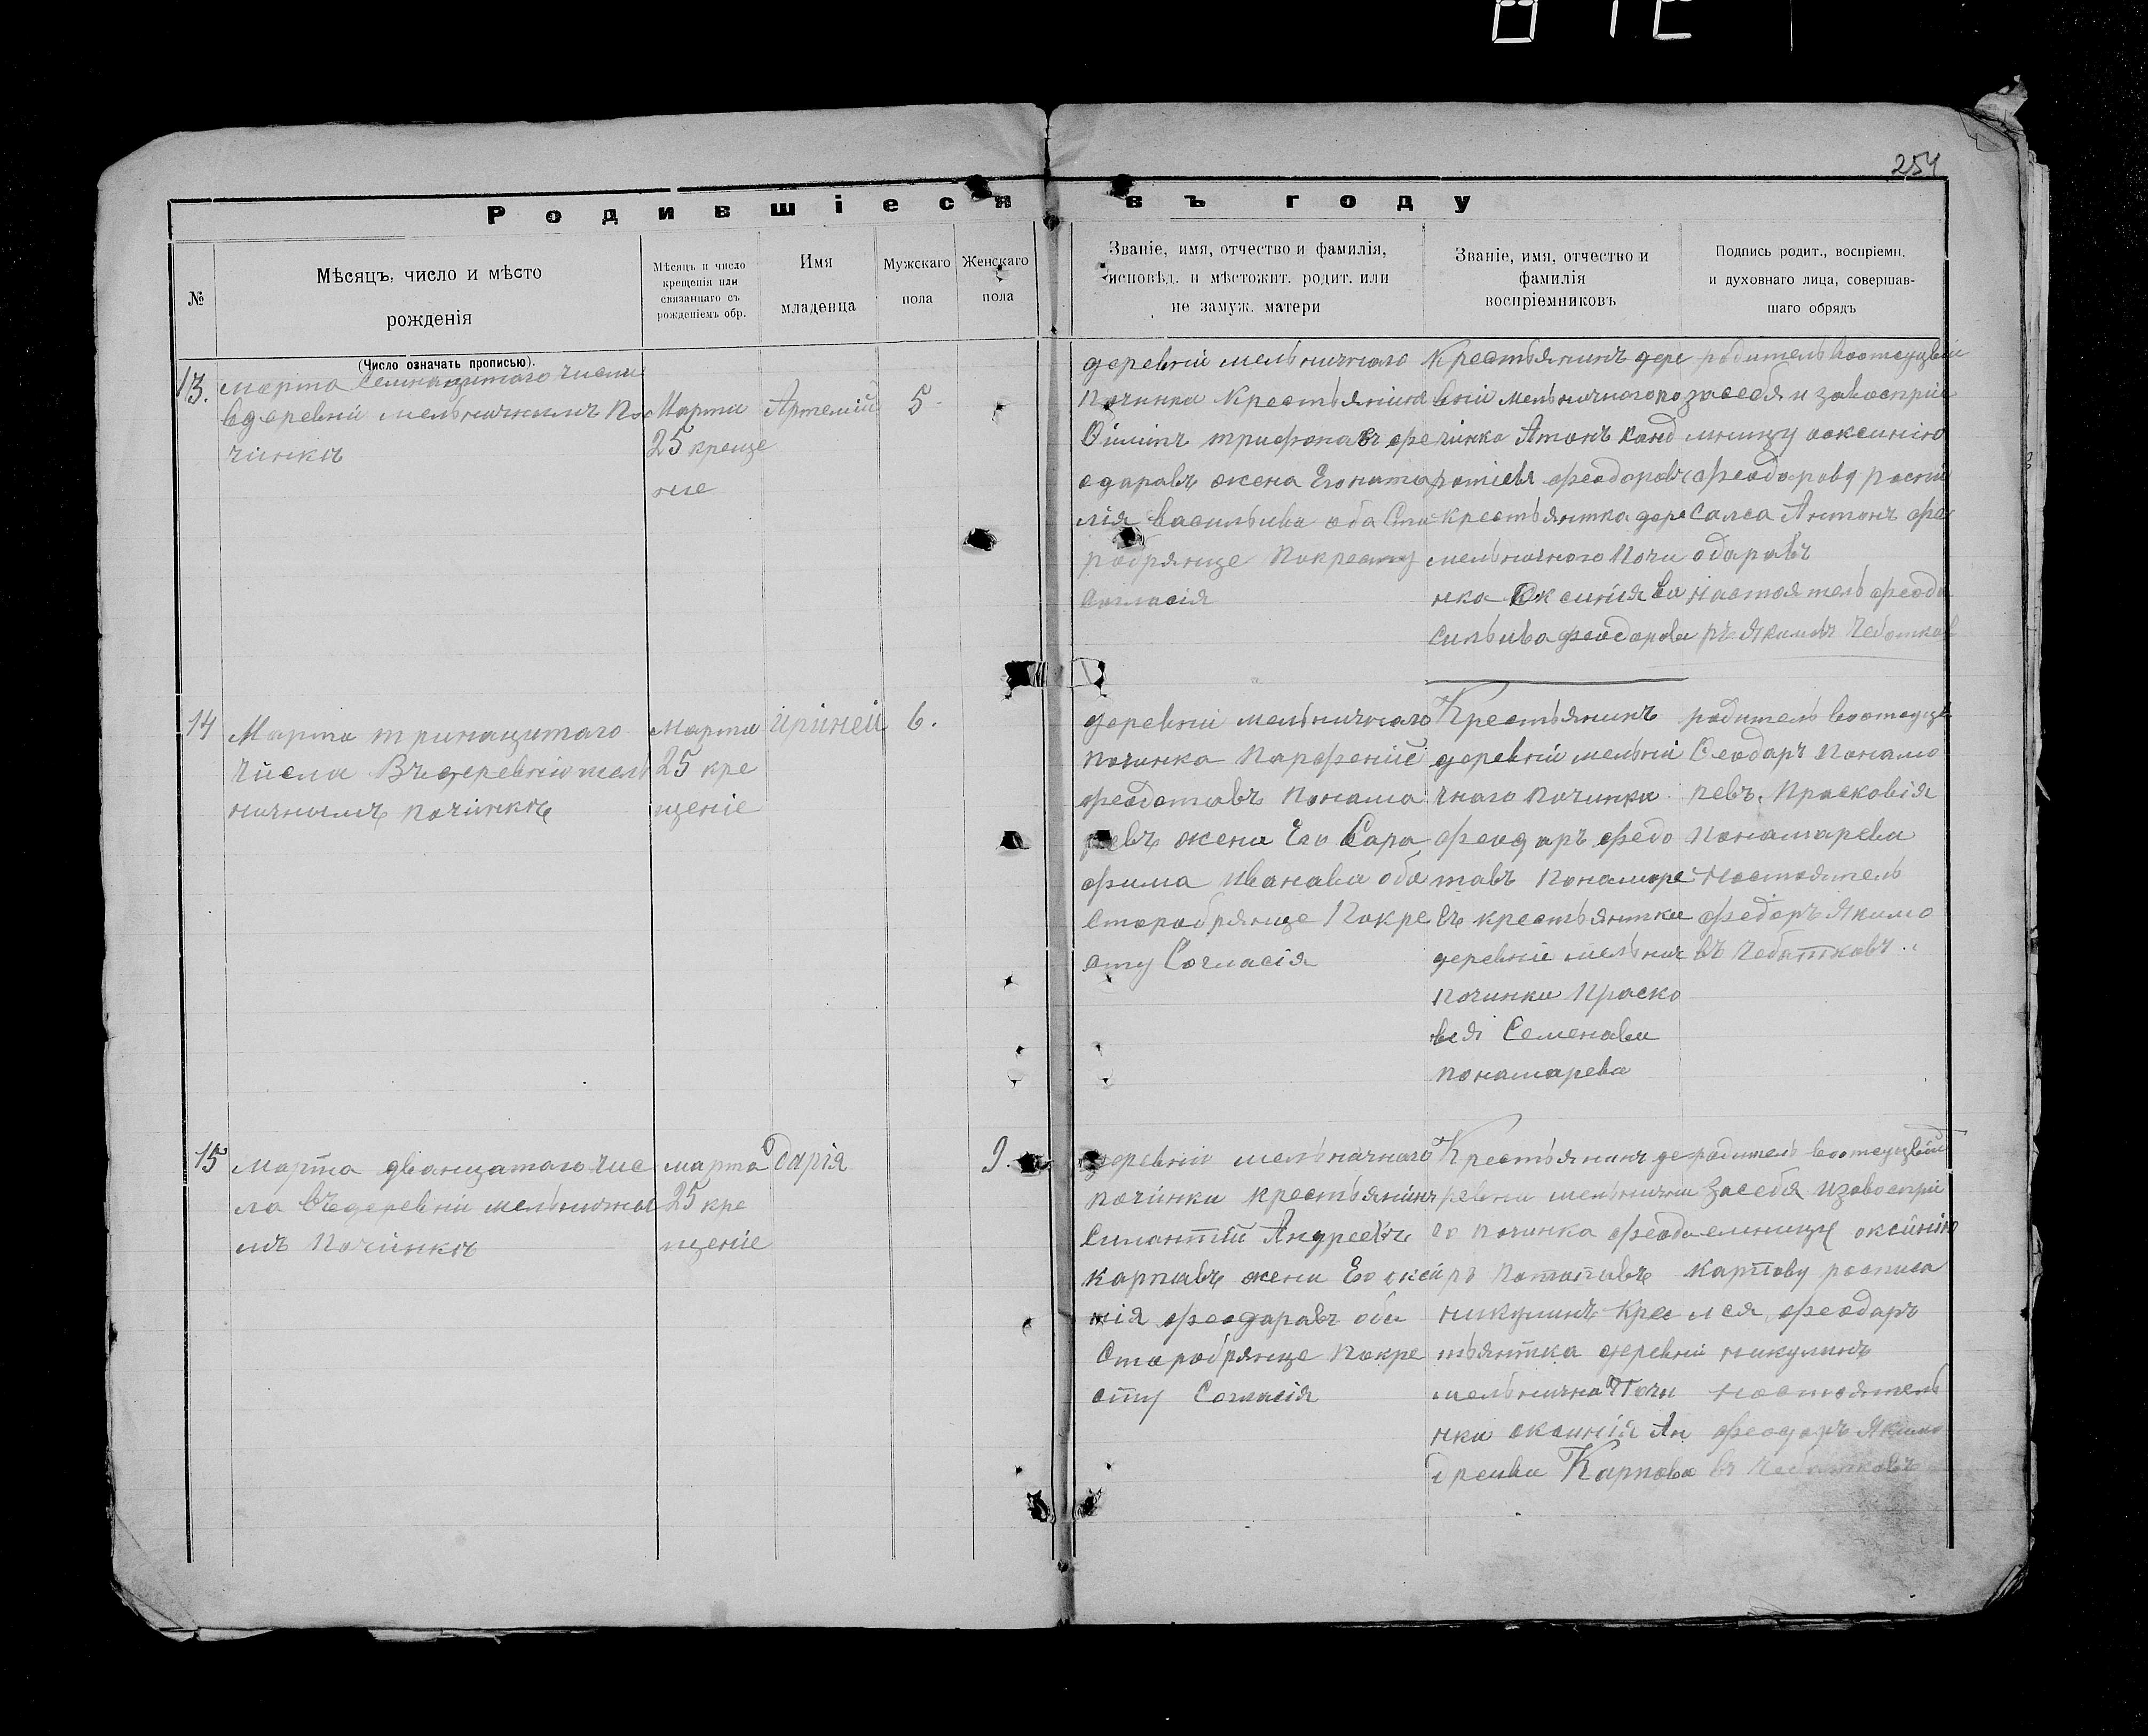 254
Родившіеся въ году
№
Мѣсяцъ, число и мѣсто
рожденія
(Число означать прописью).
Мѣсяцъ и число
крещенія или
связаннаго съ
рожденіемъ обр.
Имя
младенца
Мужскаго
пола
Женскаго
пола
Званіе, имя, отчество и фамилія,
исповѣд. и мѣстожит. родит. или
не замуж. матери
Званіе, имя, отчество и
фамилія
воспріемниковъ
Подпись родит., воспріемн.
и духовнаго лица, совершав-
шаго обрядъ
13.
марта семнацитаго числа
вдеревнй мельничнымъ По
чинкѣ
Марта
25 креще
ние
Артемій
5
деревнй мельничнаго
Починка Крестьянинъ
Филипъ трифонавъ фе
одаравъ жена Его ната
лія васильива оба Ста
робрянце Покресту
Согласія
Крестьянинъ дере
вній мельничного по
чинка Атонъ
феодоровъ
крестьянтка дере
мельничного Почи
нка Оксинія ва
сильива феодорова
родитель
засебя и завоспріе
мницу оксинію
феодорову роспи
салса Антонъ фе
одаравъ
настоятель феода
ръ Якимвъ Чеботкав
14
Марта тринацитаго
числа Въдеревнй мель
ничнымъ починкѣ
марта
25 кре
щеніе
ириней
6.
деревнй мельничнаго
починка Парфеній
феодотавъ Понама
ревъ жена Его Сара
фима иванава оба
старобрянце Покре
сту Согласія
Крестьянинъ
деревнй мельни
чнаго починка
феодаръ федо
тавъ Понаморе
въ крестьянтка
деревніе мельнич
починка Праско
вея Семенава
понамарева
родитель
Феодаръ Понамо
ревъ. Прасковія
Понамарева
настоятель
федоръ Якимо
въ Чебатковъ.
15
марта дванцатаго чис
ла въдеревнй мельничны
мъ Починкѣ
марта
25 кре
щеніе
Дарія
9.
деревнй мельничнаго
починка крестьянинъ
Силантій Андреевъ
карпавъ жена Его окси
нія феодаравъ оба
Старобрянце Покре
сту Согласія
Крестьянинъ де
ревни мельнични
го починка феода
ръ Потапивъ
никулинъ крес
тьянтка деревнй
мельнична Почи
нка оксинія Ан
дреива Карпова
родитель
засебя изавоспри
емницу оксинию
карпову росписа
лся, феодаръ
никулинъ
настоятель
феодаръ Якимо
въ Чебатковъ